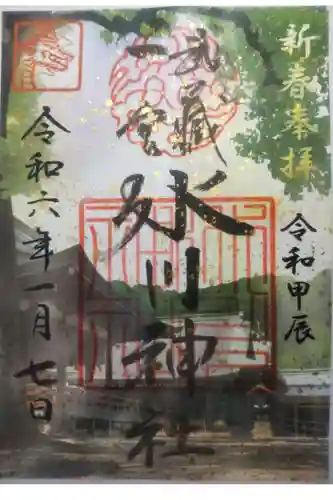 新春奉拝
令和甲辰
武藏
一宮
氷川神社
令和六年一月七日